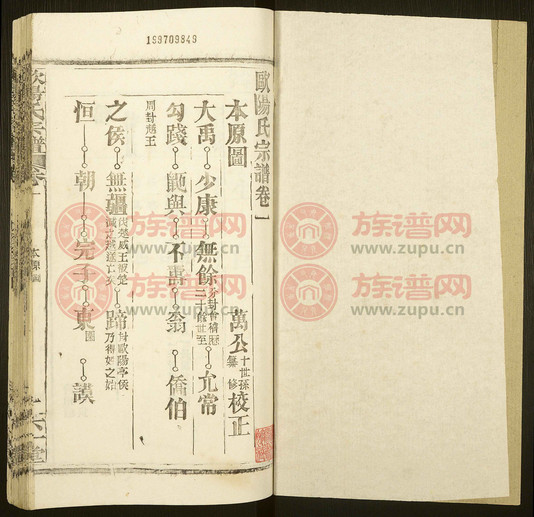 199709849
歐陽氏宗譜卷一
本原圖 萬公十世孫 纂修 校正
大禹 少康 無餘 允常
勾踐 鼫與 不壽 翁 僑伯
周封越王
之侯 無疆 蹄 封歐陽亭侯乃得姓之始
恒 朝 完 東 謨
歐陽氏宗譜 卷一
本原圖
六一堂
族谱网
www.zupu.cn
族谱网
www.zupu.cn
族谱网
www.zupu.cn
族谱网
www.zupu.cn